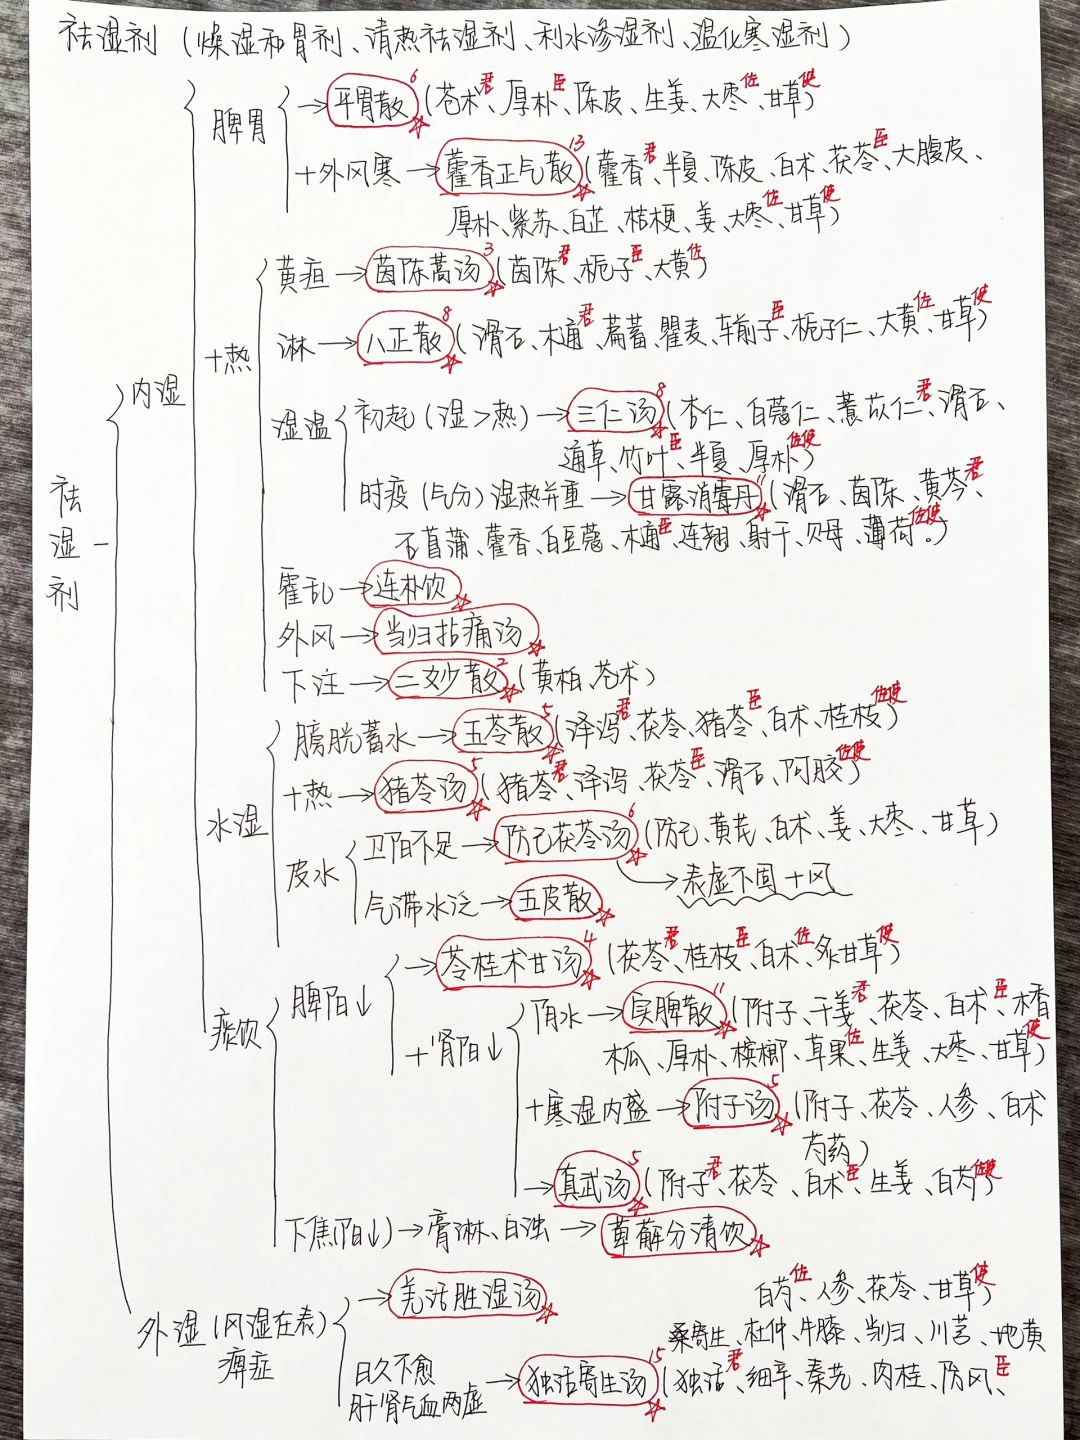 祛湿剂（燥湿和胃剂、清热祛湿剂、利水渗湿剂、温化寒湿剂）
祛湿剂
内湿
脾胃
→平胃散6（苍术君、厚朴臣、陈皮、生姜、大枣佐、甘草使）
+外风寒→藿香正气散13（藿香君、半夏、陈皮、白术、茯苓臣、大腹皮、
厚朴、紫苏、白芷、桔梗、姜、大枣佐、甘草使）
+热
黄疸→茵陈蒿汤3（茵陈君、栀子臣、大黄佐）
淋→八正散8（滑石、木通君、萹蓄、瞿麦、车前子臣、栀子仁、大黄佐、甘草使）
湿温
初起（湿>热）→三仁汤8（杏仁、白蔻仁、薏苡仁君、滑石、
通草、竹叶臣、半夏、厚朴佐使）
时疫（气分）湿热并重→甘露消毒丹11（滑石、茵陈、黄芩君、
石菖蒲、藿香、白豆蔻、木通臣、连翘、射干、贝母、薄荷佐使。）
霍乱→连朴饮
外风→当归拈痛汤
下注→二妙散2（黄柏、苍术）
水湿
膀胱蓄水→五苓散5（泽泻君、茯苓、猪苓臣、白术、桂枝佐使）
+热→猪苓汤5（猪苓君、泽泻、茯苓臣、滑石、阿胶佐使）
皮水
卫阳不足→防己茯苓汤6（防己、黄芪、白术、姜、大枣、甘草）
→表虚不固+风
气滞水泛→五皮散
痰饮
脾阳↓
→苓桂术甘汤4（茯苓君、桂枝臣、白术佐、炙甘草使）
+肾阳↓
阴水→实脾散11（附子、干姜君、茯苓、白术臣、木香
木瓜、厚朴、槟榔、草果佐、生姜、大枣、甘草使）
+寒湿内盛→附子汤5（附子、茯苓、人参、白术
芍药）
→真武汤5（附子君、茯苓、白术臣、生姜、白芍佐使）
下焦(阳↓)→膏淋、白浊→萆薢分清饮
外湿（风湿在表）
痹症
→羌活胜湿汤
白芍佐、人参、茯苓、甘草使）
桑寄生、杜仲、牛膝、当归、川芎、地黄
日久不愈
肝肾气血两虚→独活寄生汤15（独活君、细辛、秦艽、肉桂、防风臣、